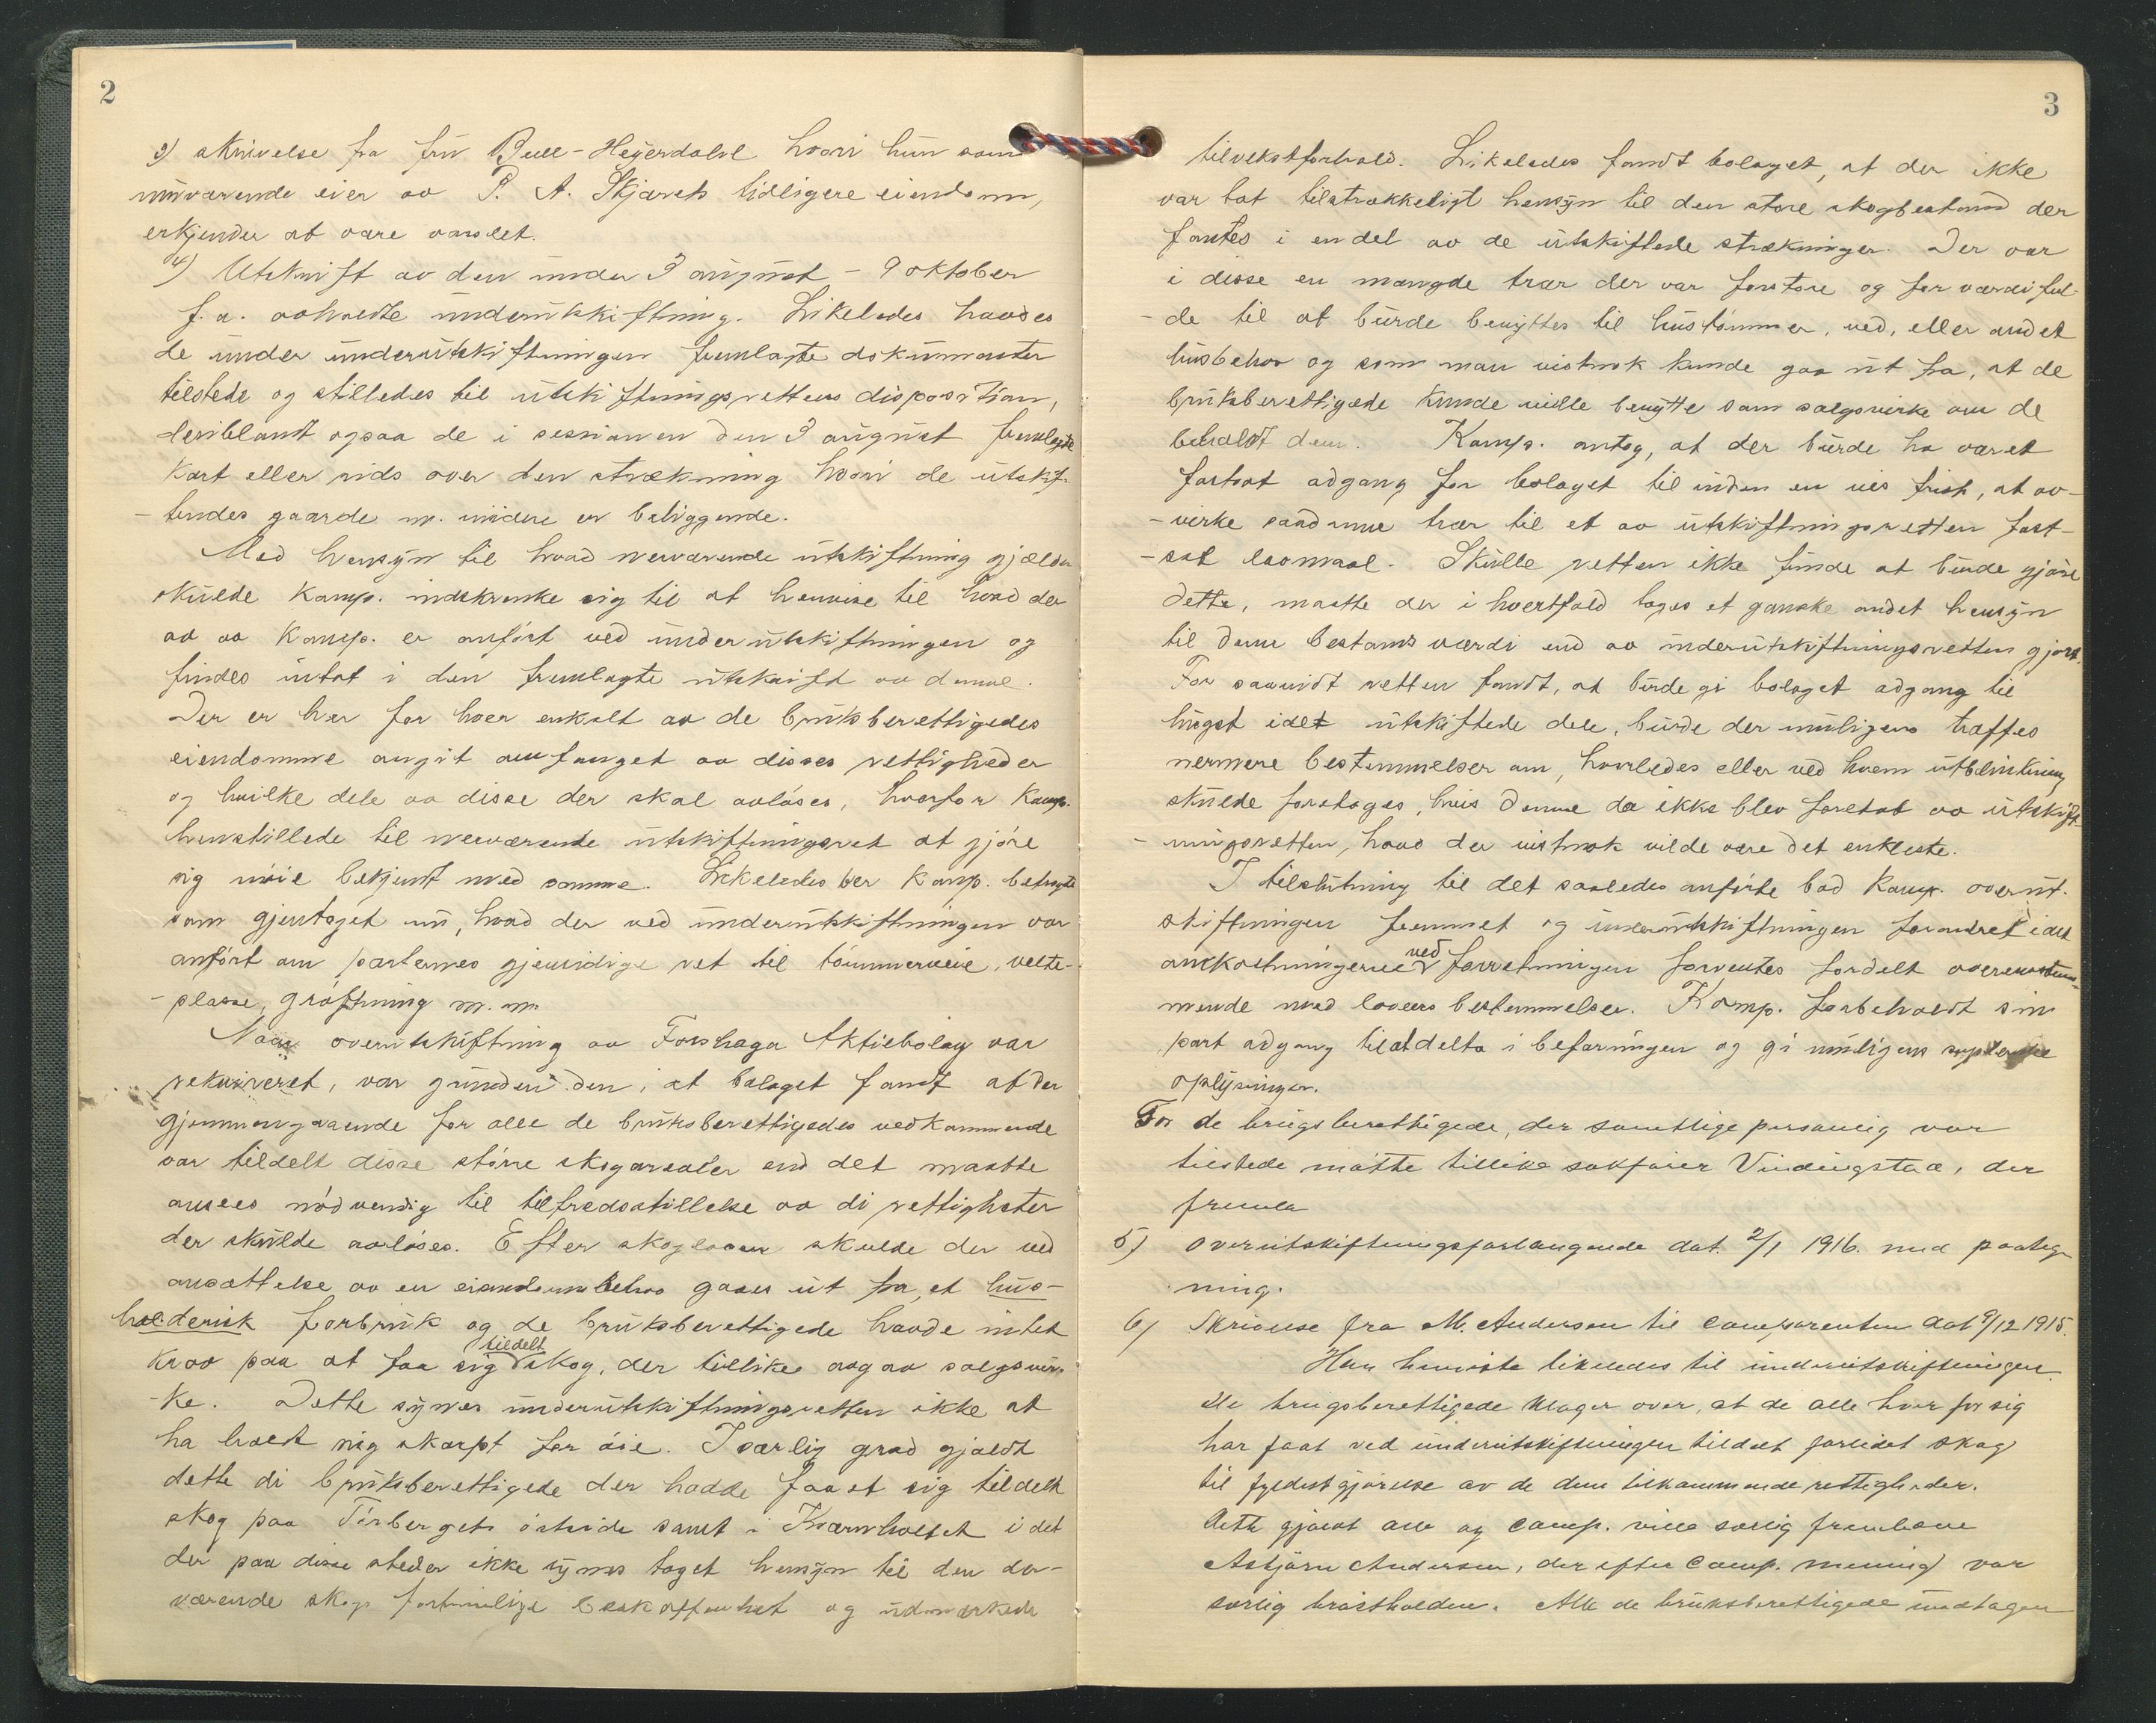 2
3) skrivelse fra fru Bull-Heyerdahl hvori hun som
nuværende eier av P. A. Skjærets tidligere eiendom,
erkjender at være varslet.
4) Utskrift av den under 3 august - 9 oktober
f.a. avholdte underutskiftning. Likeledes havdes
de under underutskiftningen fremlagte dokumenter
tilstede og stilledes til utskiftningsrettens disposition,
deriblandt ogsaa de i sessionen den 3 august fremlagte
Kart eller rids over den strækning hvori de utskif-
-tendes gaarde m. videre er beliggende.
Med hensyn til hvad nerværende utskiftning gjælder
skulde Komp. indskrenke sig til at henvise til hvad der
av av Komp. er anført ved underutskiftningen og
findes intat i den fremlagte utskrift av denne.
Der er her for hver enkelt av de bruksberettigedes
eiendomme angit omfanget av disses rettigheder
og hvilke dele av disse der skal avløses, hvorfor Komp.
henstillede til nerværende utskiftningsret at gjøre
sig nøie bekjendt med samme. Likeledes ber Komp. betragtet
som gjentaget nu, hvad der ved underutskiftningen var
anført om parternes gjensidige ret til tømmerveie, velte-
-plasse, grøftning m. m.
Naar overutskiftning av Forshaga Aktiebolag var
rekvireret, var grunden den, at bolaget fandt at der
gjennemgaaende for alle de bruksberettigedes vedkommende
var tildelt disse større skogarealer end det maatte
ansees nødvendig til tilfredsstillelse av di rettigheter
der skulde avløses. Efter skogloven skulde der ved
ansættelse av en eiendomsbehov gaaes ut fra et hus-
holderisk forbruk og de bruksberettigede havde intet
krav paa at faa sig tildelt skog, der tillike avgav salgsvir-
-ke. Dette synes underutskiftningsretten ikke at
ha holdt sig skarpt for øie. I særlig grad gjaldt
dette di bruksberettigede der hadde faaet sig tildelt
skog paa Torbergets østside samt i Kvernholtet idet
der paa disse steder ikke synes taget hensyn til den der-
værende skogs fortrinlige beskaffenhet og udmærkede
3
tilvekstforhold. Likeledes fandt bolaget, at der ikke
var tat tilstrækkeligt hensyn til den store skogbestand der
fantes i en del av de utskiftede strækninger. Der var
i disse en mængde trær der var for store og for værdiful-
-de til at burde benyttes til hustømmer, ved, eller andet
husbehov og som man vistnok kunde gaa ut fra, at de
bruksberettigede kunde ville benytte som salgsvirke om de
beholdt dem. Komp. antog, at der burde ha været
fortat adgang for bolaget til inden en vis frist, at av-
-virke saadanne trær til et av utskiftningsretten fast-
-sat lavmaal. Skulle retten ikke finde at burde gjøre
dette, maatte der i hvertfald tages et ganske andet hensyn
til denne bestands værdi end av underutskiftningsretten gjort.
For saavidt retten fandt, at burde gi bolaget adgang til
hugst i de utskiftede dele, burde der muligens træffes
nermere bestemmelser om, hvorledes eller ved hvem utblinkning
skulde foretages, hvis denne da ikke blev foretat av utskift-
-ningsretten, hvad der vistnok vilde være det enkleste.
I tilslutning til det saaledes anførte bad Komp. overut-
skiftningen fremmet og underutskiftningen forandret idet
omkostningerne ved forretningen forventes fordelt overenstem-
mende med lovens bestemmelser. Komp. forbeholdt sin
part adgang til at delta i befaringen og gi muligens
oplysninger.
For de brugsberettigede, der samtlige personlig var
tilstede møtte tillike sakfører Vindingstad, der
fremla
5) Overutskiftningsforlangende dat. 2/1 1916. med paateg-
ning.
6) Skrivelse fra M. Andersen til Comparenten dat 9/12 1915.
Han henviste likeledes til underutskiftningen.
De brugsberettigede klager over, at de alle hver for sig
har faat ved underutskiftningen tildelt forlidet skog
til fyldestgjørelse av de dem tilkommende rettigheder.
Dette gjaldt alle og Comp. ville særlig fremheve
Asbjørn Andersen, der efter Comp. mening var
særlig bråstholden. Alle de bruksberettigede undtagen